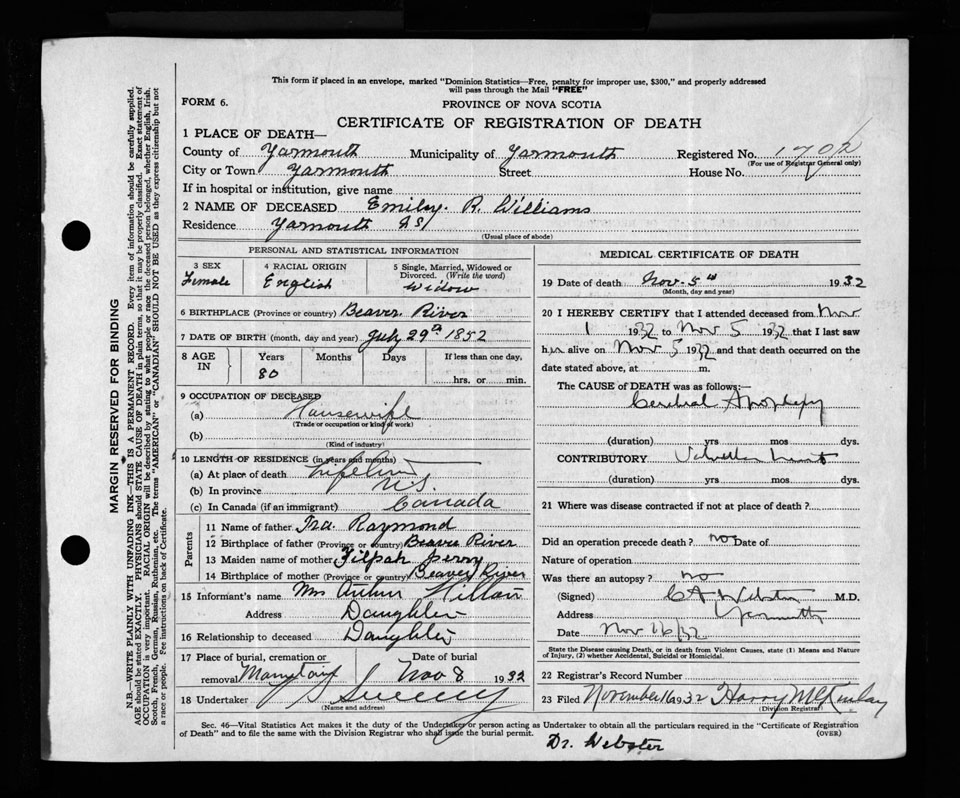 This form if placed in an envelope, marked "Dominion Statistics—Free, penalty for improper use, $300," and properly addressed
will pass through the Mail "FREE"
FORM 6.
PROVINCE OF NOVA SCOTIA
CERTIFICATE OF REGISTRATION OF DEATH
1 PLACE OF DEATH—
County of Yarmouth Municipality of Yarmouth Registered No.
(For use of Registrar General only)
City or Town Yarmouth Street House No.
If in hospital or institution, give name
2 NAME OF DECEASED Emily. R. Williams
Residence Yarmouth
(Usual place of abode)
PERSONAL AND STATISTICAL INFORMATION
3 SEX Female
4 RACIAL ORIGIN English
5 Single, Married, Widowed or
Divorced. (Write the word)
Widow
6 BIRTHPLACE (Province or country) Beaver River
7 DATE OF BIRTH (month, day and year) July 29th 1852
8 AGE IN Years Months Days If less than one day,
80
hrs. or min.
9 OCCUPATION OF DECEASED
(a) Housewife
(Trade or occupation or kind of work)
(b)
(Kind of industry)
10 LENGTH OF RESIDENCE (in years and months)
(a) At place of death Lifetime
(b) In province N.S.
(c) In Canada (if an immigrant) Canada
Parents
11 Name of father Ira. Raymond
12 Birthplace of father (Province or country) Beaver River
13 Maiden name of mother Zilpah Perry
14 Birthplace of mother (Province or country) Beaver River
15 Informant's name Mrs Arthur
Address Daughter
16 Relationship to deceased Daughter
17 Place of burial, cremation or
removal
Date of burial
Nov 8 1932
18 Undertaker Sweeny
(Name and address)
MEDICAL CERTIFICATE OF DEATH
19 Date of death Nov. 5th 1932
(Month, day and year)
20 I HEREBY CERTIFY that I attended deceased from Nov
1 1932 to Nov 5 1932 that I last saw
her alive on Nov 5 1932 and that death occurred on the
date stated above, at m.
The CAUSE OF DEATH was as follows:—
Cerebral Apoplexy
(duration) yrs mos dys.
CONTRIBUTORY
(duration) yrs mos dys.
21 Where was disease contracted if not at place of death?
Did an operation precede death? no Date of
Nature of operation
Was there an autopsy? no
(Signed) C A Webster M.D.
Address Yarmouth
Date Nov 16/32
State the Disease causing Death, or in death from Violent Causes, state (1) Means and Nature
of Injury, (2) whether Accidental, Suicidal or Homicidal.
22 Registrar's Record Number
23 Filed November 16 1932 Harry McKinlay
(Division Registrar)
Sec. 46—Vital Statistics Act makes it the duty of the Undertaker or person acting as Undertaker to obtain all the particulars required in the "Certificate of Registration
of Death" and to file the same with the Division Registrar who shall issue the burial permit.
(OVER)
Dr. Webster
MARGIN RESERVED FOR BINDING
N.B.—WRITE PLAINLY WITH UNFADING INK—THIS IS A PERMANENT RECORD. Every item of information should be carefully supplied.
AGE should be stated EXACTLY. PHYSICIANS should STATE CAUSE OF DEATH in plain terms, so that it may be properly classified. Exact statement of
OCCUPATION is very important. RACIAL ORIGIN will be described by stating to what people or race the deceased person belonged, whether English, Irish,
Scotch, French, German, Russian, Ruthenian, etc. The terms "AMERICAN" or "CANADIAN" SHOULD NOT BE USED as they express citizenship but not
a race or people. Fee instructions on back of Certificate.